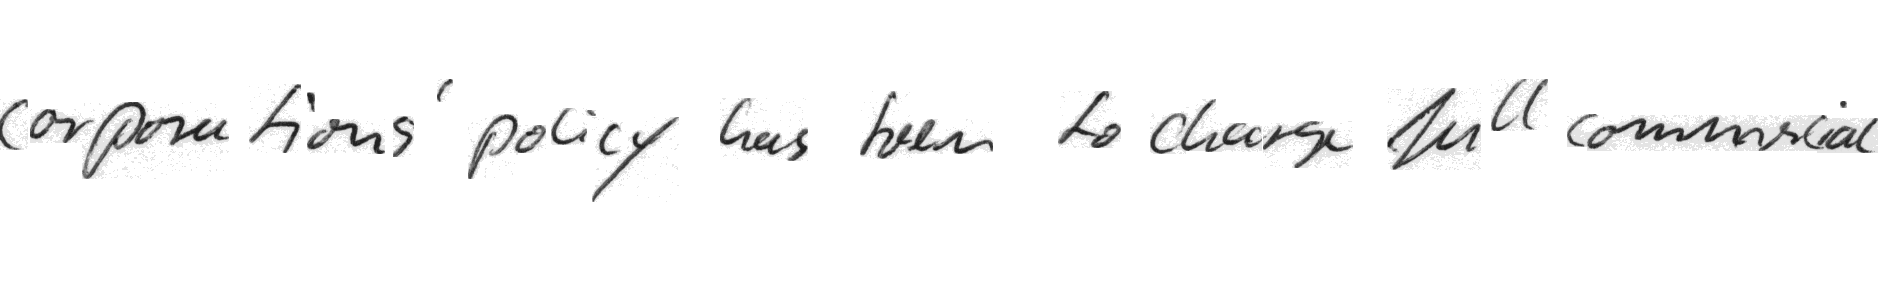 corporations' policy has been to charge full commercial